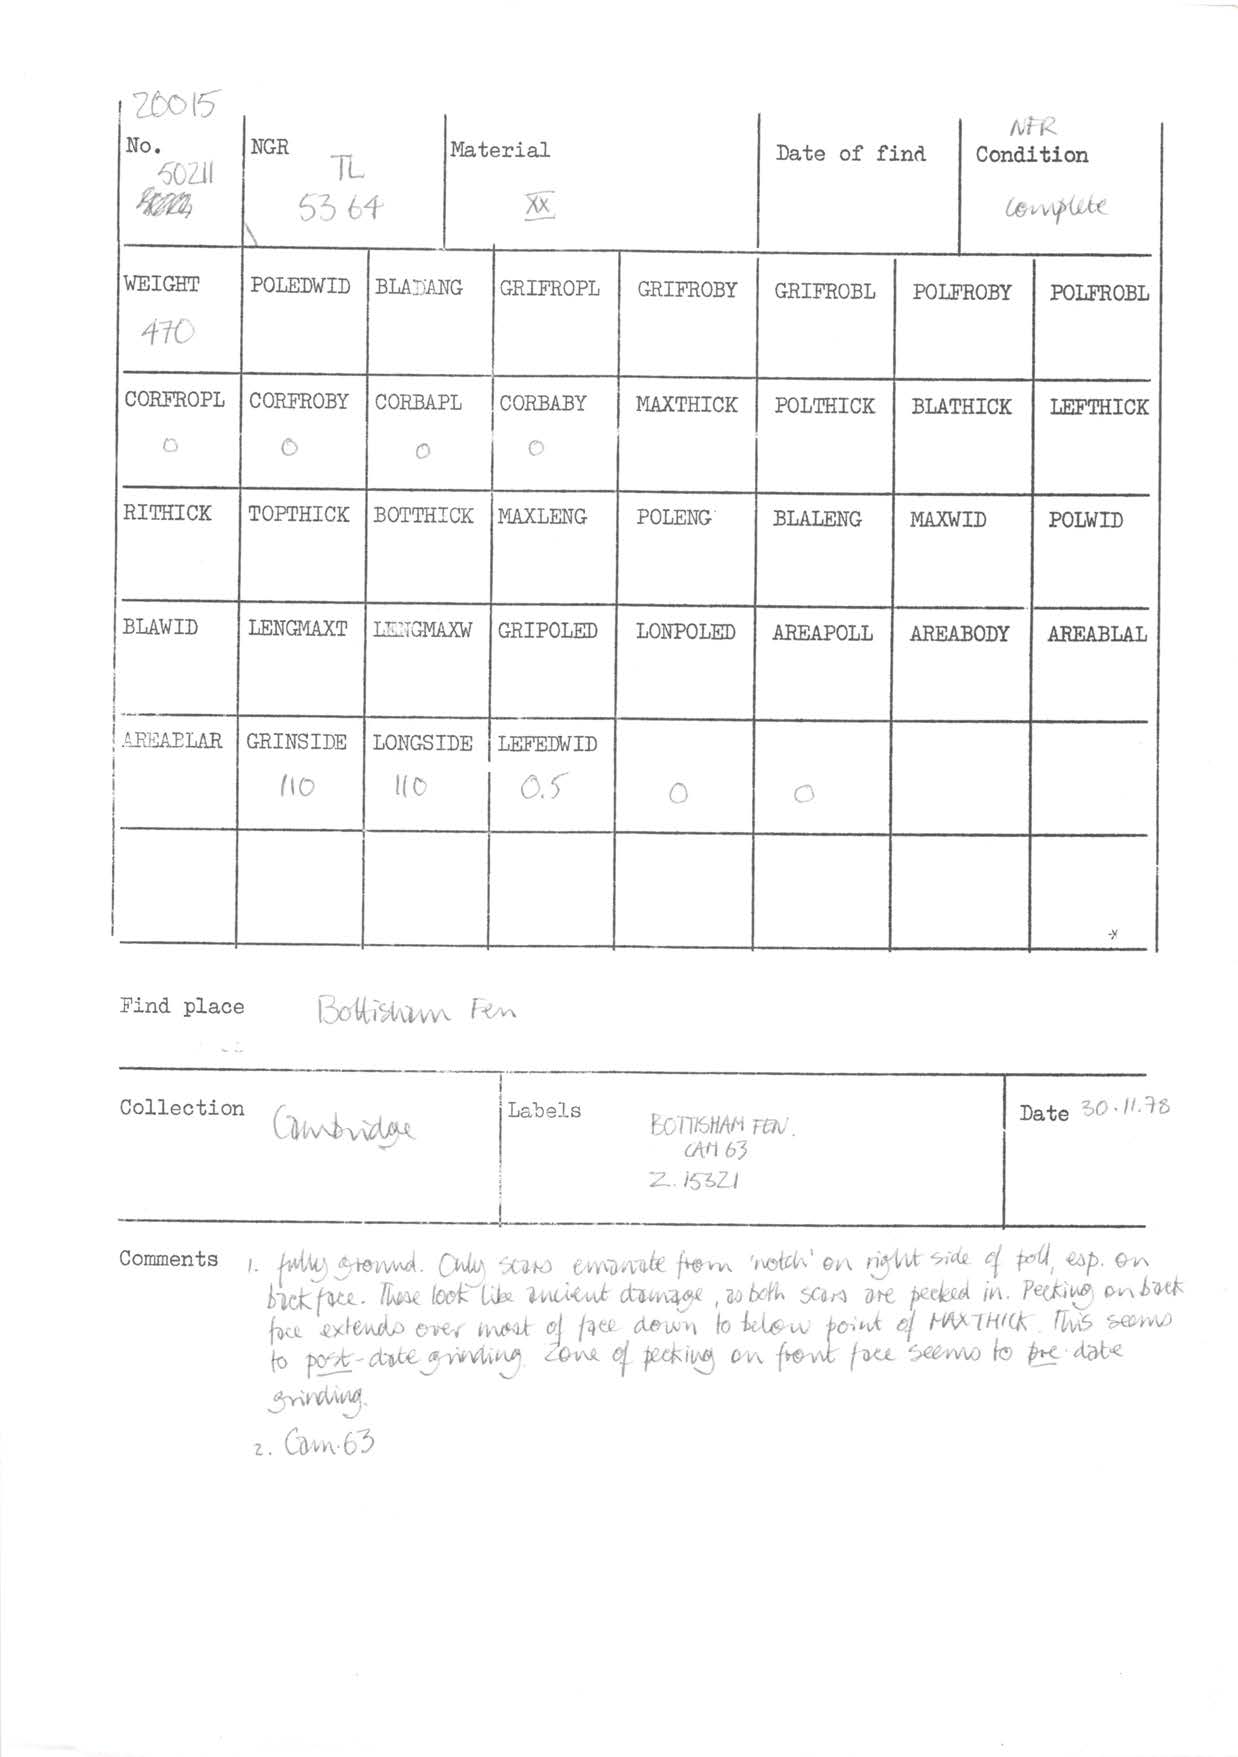 20015
No. NGR Material Date of find NFR Condition
50211 TL 53 64 XX complete
WEIGHT POLEDWID BLADANG GRIFROPL GRIFROBY GRIFROBL POLFROBY POLFROBL
470
CORFROPL CORFROBY CORBAPL CORBABY MAXTHICK POLTHICK BLATHICK LEFTHICK
0 0 0 0
RITHICK TOPTHICK BOTTHICK MAXLENG POLENG BLALENG MAXWID POLWID
BLAWID LENGMAXT LENGMAXW GRIPOLED LONPOLED AREAPOLL AREABODY AREABLAL
AREABLAR GRINSIDE LONGSIDE LEFEDWID
110 110 0.5 0 0
Find place Bottisham Fen
Collection Cambridge
Labels BOTTISHAM FEN.
CAM 63
Z. 15321
Date 30.11.78
Comments 1. fully ground. Only scars emanate from 'notch' on right side of poll, esp. on
back face. These look like ancient damage, as both scars are pecked in. Pecking on back
face extends over most of face down to below point of MAXTHICK. This seems
to post-date grinding. Zone of pecking on front face seems to pre-date
grinding.
2. Cam.63